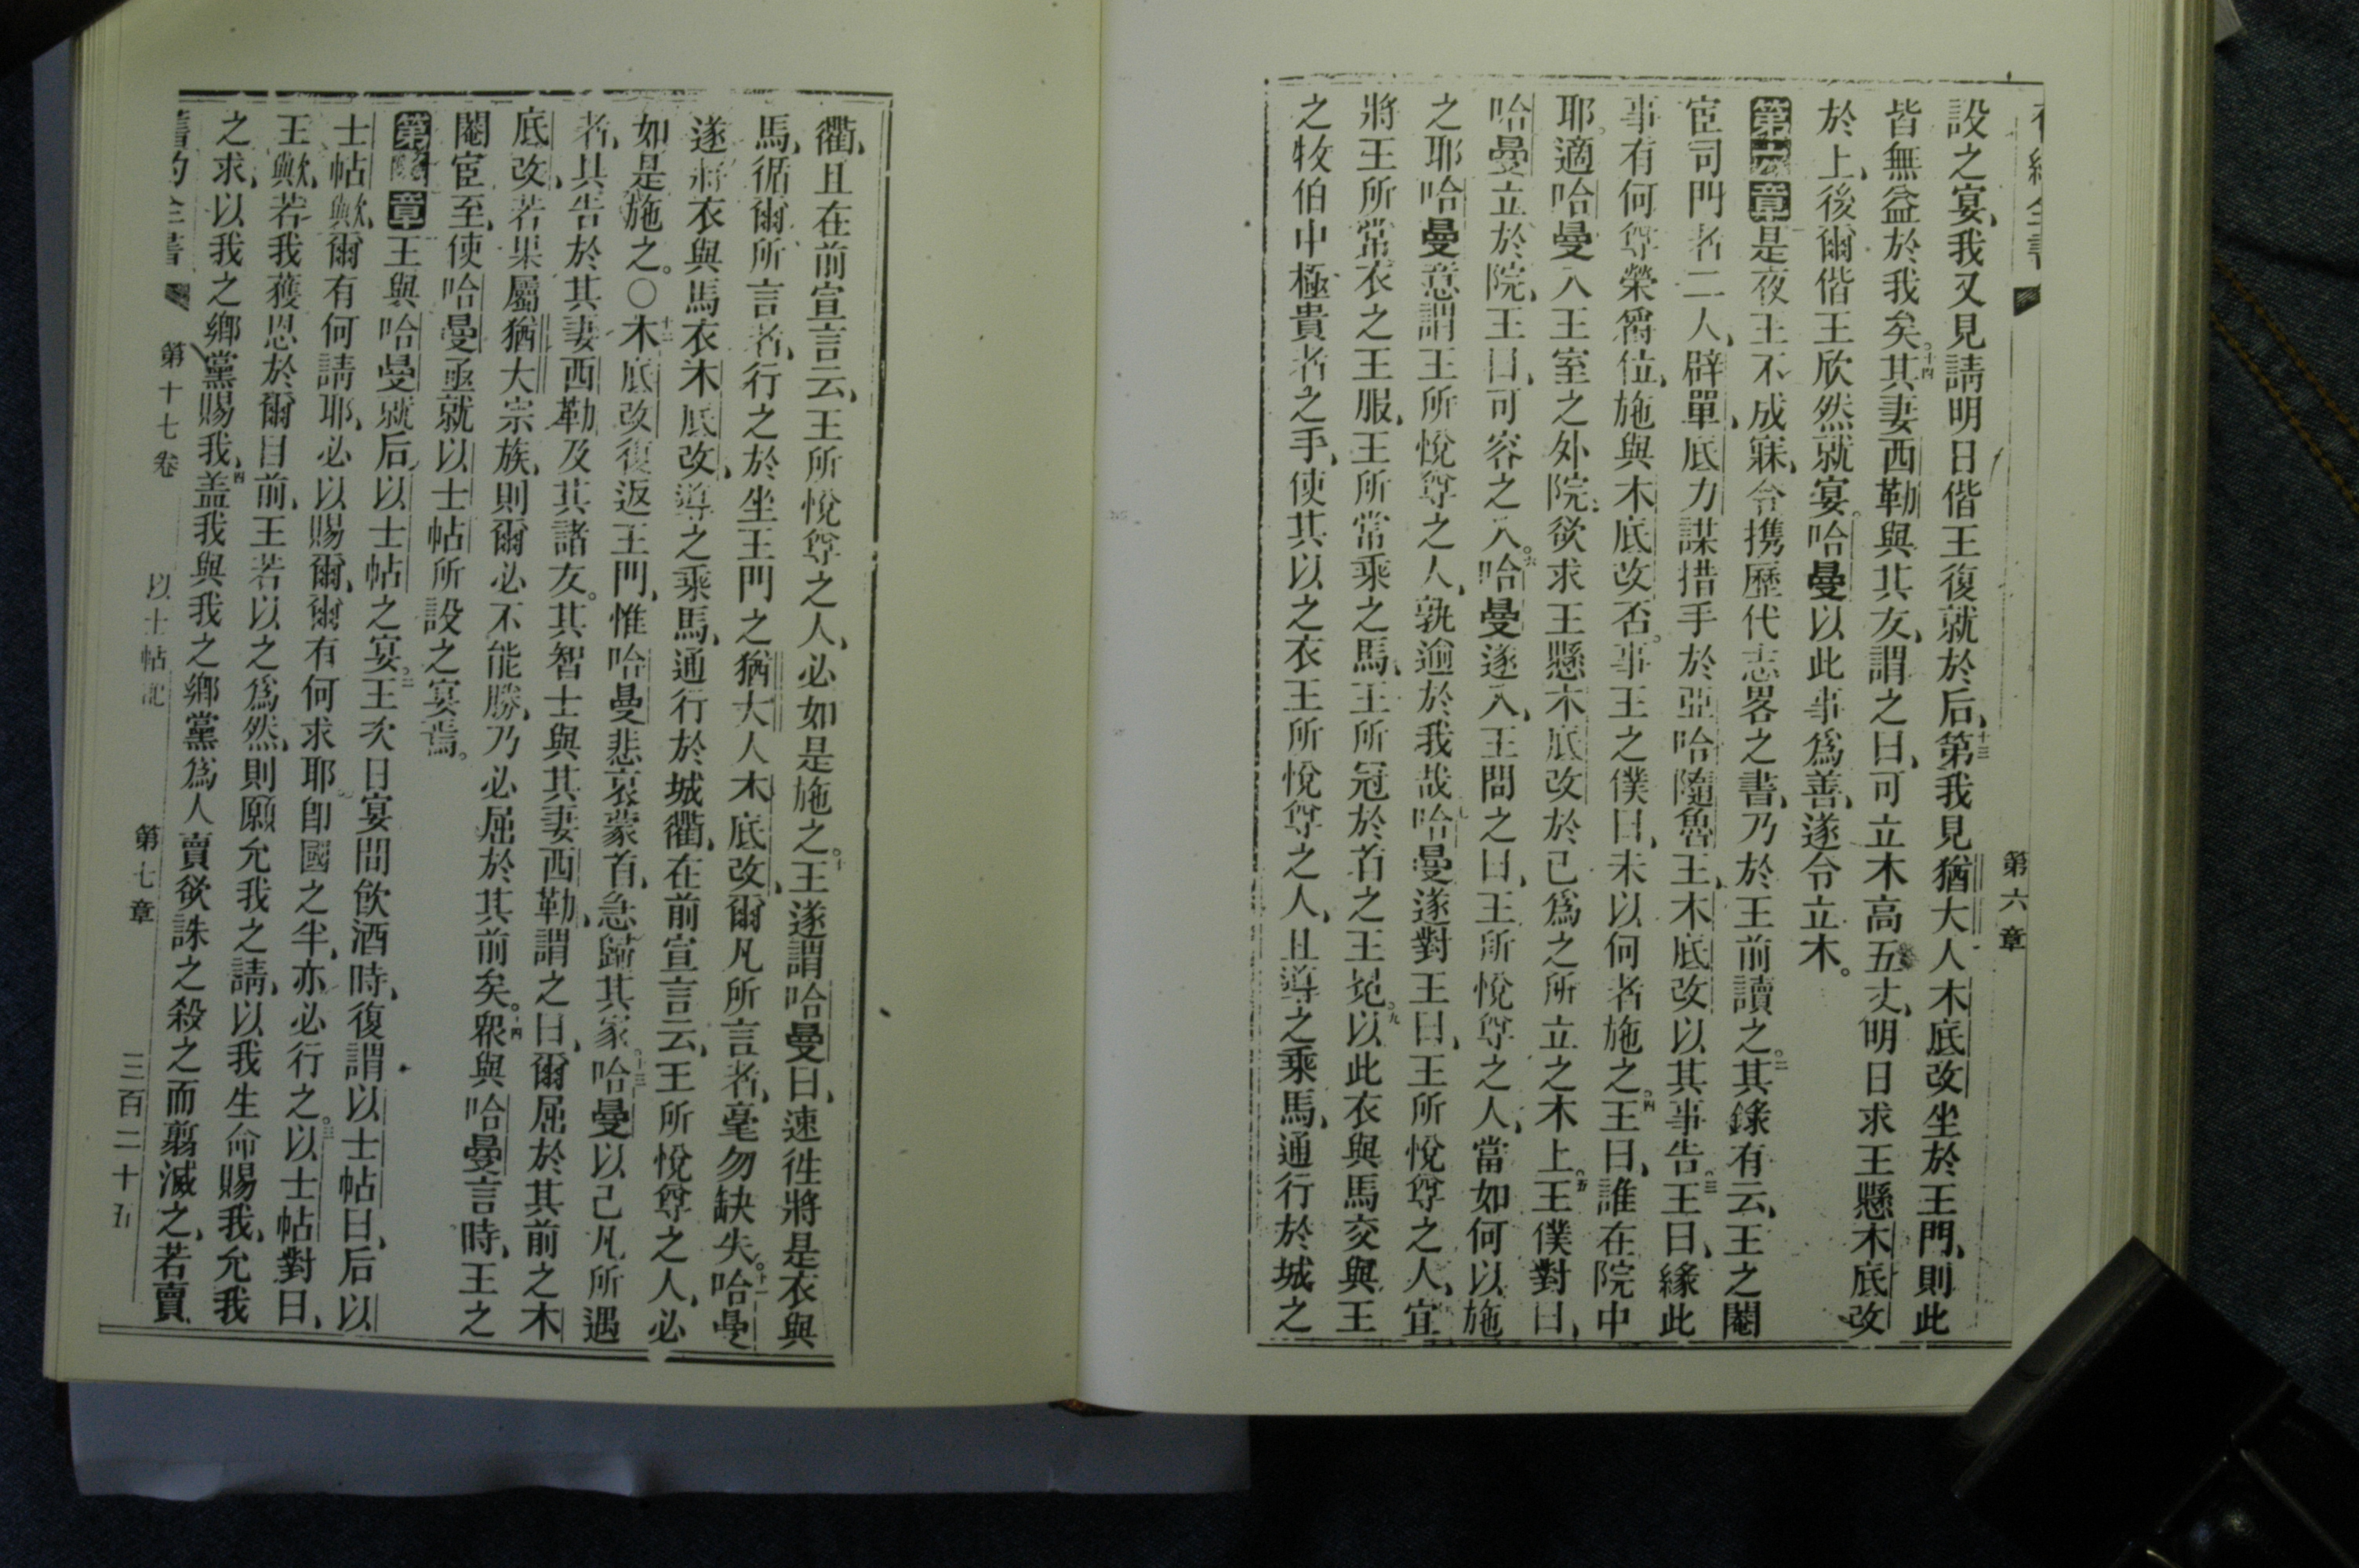 第六章
設之宴、我又見請明日偕王復就於后、十三第我見猶大人木底改坐於王門、則此
皆無益於我矣。十四其妻西勒與其友、謂之曰、可立木高五丈、明日求王懸木底改
於上、後爾偕王欣然就宴。哈曼以此事爲善、遂令立木。
第六章是夜王不成寐、令携歷代志畧之書、乃於王前讀之。二其錄有云、王之閹
宦司門者二人、辟單、底力謀措手於亞哈隨魯王、木底改以其事告。三王曰、緣此
事有何尊榮爵位、施與木底改否。事王之僕曰、未以何者施之。四王曰、誰在院中
耶。適哈曼入王室之外院、欲求王懸木底改於已爲之所立之木上。五王僕對曰、
哈曼立於院、王曰、可容之入。六哈曼遂入、王問之曰、王所悅尊之人、當如何以施
之耶、哈曼意謂王所悅尊之人、孰逾於我哉、七哈曼遂對王曰、王所悅尊之人、宜
將王所常衣之王服、王所常乘之馬、王所冠於首之王冕。九以此衣與馬交與王
之牧伯中極貴者之手、使其以之衣王所悅尊之人、且導之乘馬、通行於城之
衢、且在前宣言云、王所悅尊之人、必如是施之。十王遂謂哈曼曰、速徃將是衣與
馬、循爾所言者、行之於坐王門之猶大人木底改、爾凡所言者、毫勿缺失。十一哈曼
遂將衣與馬衣木底改、導之乘馬、通行於城衢、在前宣言云、王所悅尊之人、必
如是施之。〇十二木底改復返王門、惟哈曼悲哀蒙首、急歸其家。十三哈曼以己凡所遇
者、具告於其妻西勒及其諸友。其智士與其妻西勒、謂之曰、爾屈於其前之木
底改、若果屬猶大宗族、則爾必不能勝、乃必屈於其前矣。十四衆與哈曼言時、王之
閹宦至、使哈曼亟就以士帖所設之宴焉。
第七章王與哈曼就后以士帖之宴。二王次日宴間飲酒時、復謂以士帖曰、后以
士帖歟、爾有何請耶、必以賜爾、爾有何求耶、卽國之半、亦必行之。三以士帖對曰、
王歟、若我獲恩於爾目前、王若以之爲然、則願允我之請、以我生命賜我、允我
之求、以我之鄉黨賜我、四盖我與我之鄉黨爲人賣欲誅之殺之而翦滅之、若賣
舊約全書 第十七卷 以士帖記 第七章 三百二十五